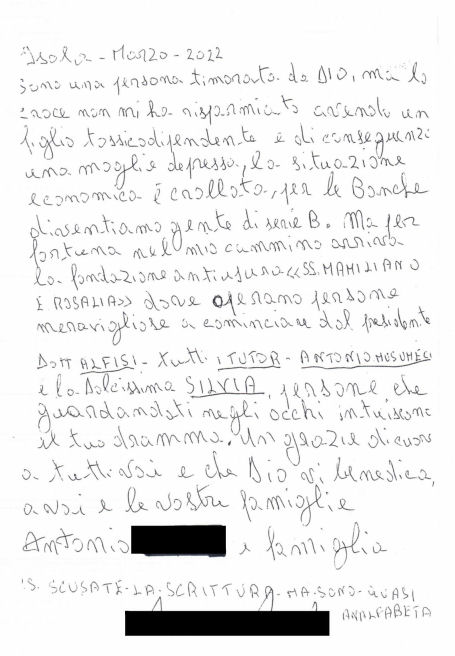 Isola - Marzo - 2022
sono una persona timorata da DIO, ma la
croce non mi ha risparmiato avendo un
figlio tossicodipendente e di conseguenza
una moglie depressa, la situazione
economica è crollata, per le Banche
diventiamo gente di serie B. Ma per
fortuna nel mio cammino arriva
la fondazione antiusura «SS. MAMILIANO
E ROSALIA» dove operano persone
meravigliose a cominciare dal presidente
DOTT ALFISI - tutti i TUTOR - ANTONIO MUSUMECI
e la Dolcissima SILVIA, persone che
guardandoti negli occhi intuiscono
il tuo dramma. Un grazie di cuore
a tutti voi e che Dio vi benedica,
a voi e le vostre famiglie
Antonio e famiglia
S. SCUSATE-LA-SCRITTURA-MA-SONO-QUASI
ANALFABETA